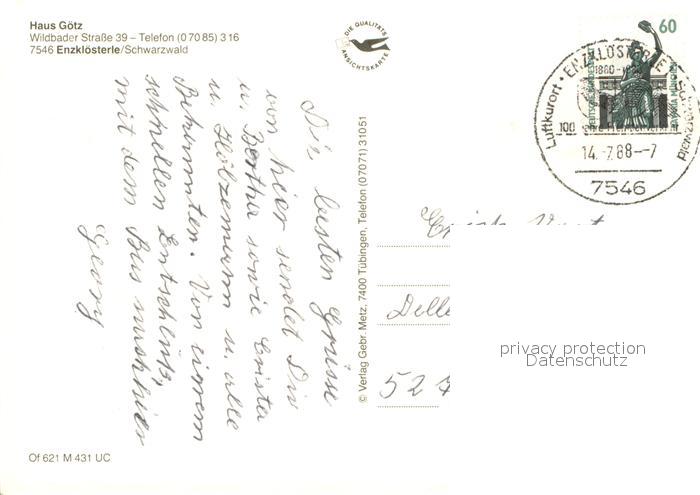 Haus Götz
Wildbader Straße 39 – Telefon (0 70 85) 3 16
7546 Enzklösterle/Schwarzwald
DIE QUALITÄTS
ANSICHTSKARTE
60
DEUTSCHE BUNDESPOST
BAVARIA MÜNCHEN
Luftkurort · ENZKLÖSTERLE
1880-1
100
14.-7.88--7
7546
Die besten Grüsse
von hier sendet Dir
u. Bertha sowie Christa
u. Holzemann u. alle
Bekannten. Von einem
schnellen Entschluß,
mit dem Bus mushier
Georg
© Verlag Gebr. Metz, 7400 Tübingen, Telefon (07071) 31051
Delle
527
privacy protection
Datenschutz
Of 621 M 431 UC